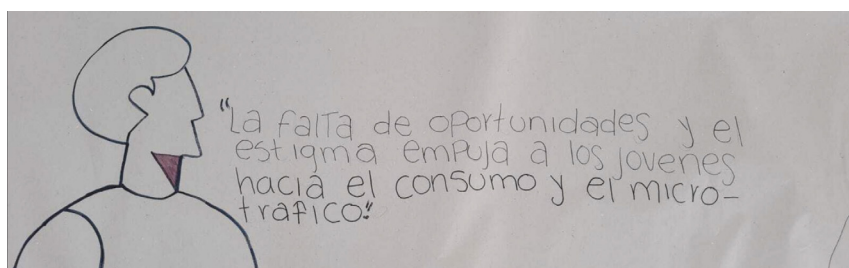 "La falta de oportunidades y el
estigma empuja a los jovenes
hacia el consumo y el micro-
trafico."